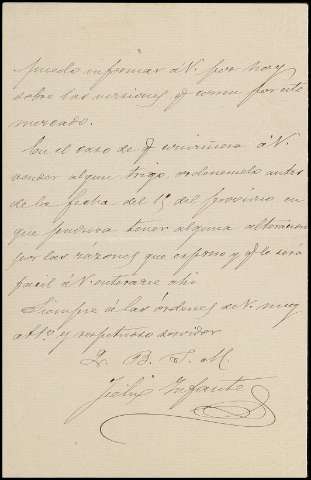 puedo informar á V. por hoy
sobre las versiones q corren por este
mercado.
En el caso de q conviniera á V.
vender algun trigo ordenemelo antes
de la fecha del 15 del proximo en
que pudiera tener alguna alteracion
por las razones que expono y q le será
facil á V. enterarse ahi
Siempre á las órdenes de V. muy
atto y respetuoso servidor
Q. B. S. M
Felix Infante